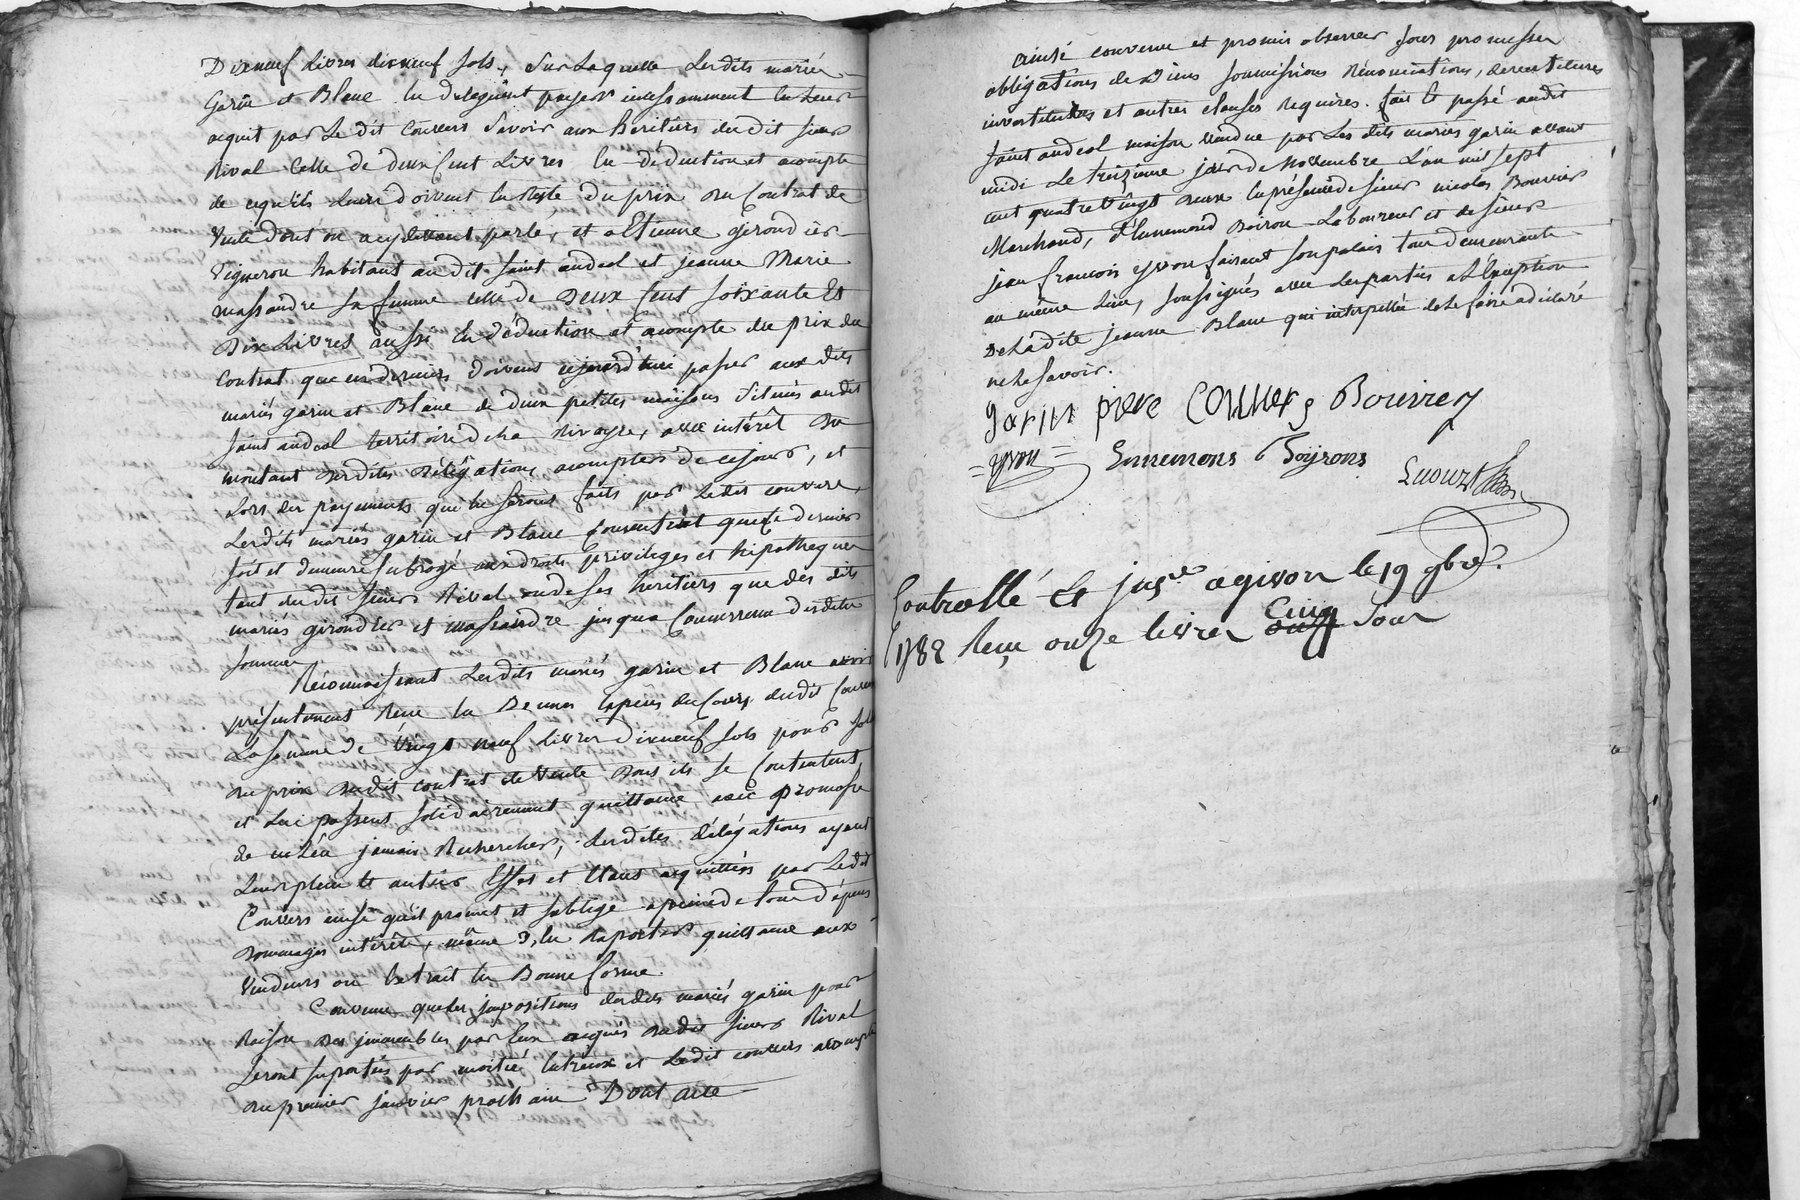 Dixneuf Livres dixneuf sols, Sur Laquelle Lesdits mariés
Garin et Blanc en deleguent payer incessamment en Leur
acquit par Le dit Couvers Savoir aux heritiers du dit sieur
Rival Celle de deux Cent Livres en déduction et acompte
de ce qu'ils Leurs doivent en Reste du prix du Contrat de
Vente dont on a cy devant parlé, et a Etienne girondier
Vigneron habitant au dit Saint andeol et jeanne Marie
massandre sa femme celle de Deux Cent soixante Et
Dix Livres aussi en déduction et acompte du prix du
Contrat que ces derniers doivent cejourd'hui passer aux dits
mariés garin et Blanc de deux petites maisons Situées audit
Saint andeol territoire de la Rivoyre, avec intérêt du
montant desdites délégations acompter de ce jour, et
Lors des payements qui en seront faits par ledit couvers,
Lesdits mariés garin et Blanc Consentent que ce dernier
soit et demeure subrogé aux droits privileges et hipotheques
tant dudit sieur Rival ou de ses heritiers que des dits
mariés girondier et massandre jusqua Concurrence desdites
sommes
Reconnoissant Lesdits mariés garin et Blanc avoir
présentement Reçu en Deniers Espéces du Cours dudit Couvers
La somme de Vingt neuf Livres dixneuf sols pour solde
du prix dudit contrat de Vente Dont ils se Contentent
et Lui passent solidairement quittance avec promesse
de ne L'en jamais Rechercher, Lesdites délégations ayant
Leur plein et entier Effet et Etant acquittées par Ledit
Couvers ainsi qu'il promet et s'oblige a peine de tous dépens
Dommages intérêts, même d'en Raporter quittance aux
Vendeurs ou Extrait en Bonne forme.
Convenu que les impositions desdits mariés garin pour
Raison des immeubles par Eux acquis du dit sieur Rival
seront suportées par moitié entreux et Ledit couvers acompter
du premier janvier prochain Dont acte
ainsi convenu et promis observer sous promesses
obligations de Biens soumissions Rénonciations,
et autres clauses Requises. fait Et passé audit
Saint andeol maison vendue par Les dits mariés garin avant
midi Le treizieme jour de Novembre L'an mil sept
cent quatre Vingt deux En présence de sieur nicolas Bouvier
Marchand, d'Ennemond Boiron Laboureur et de sieur
jean francois yvon faisant son palais tous demeurants
au même Lieu, soussignés avec Les parties a L'éxception
de Ladite jeanne Blanc qui interpellée de Le faire a déclaré
ne Le savoir.
garin piere Couvers Bouvier
yvon Ennemons Boyrons
Controllé Et jns.né a givors le 19 9bre.
1782 Reçu onze livres Cinq sous